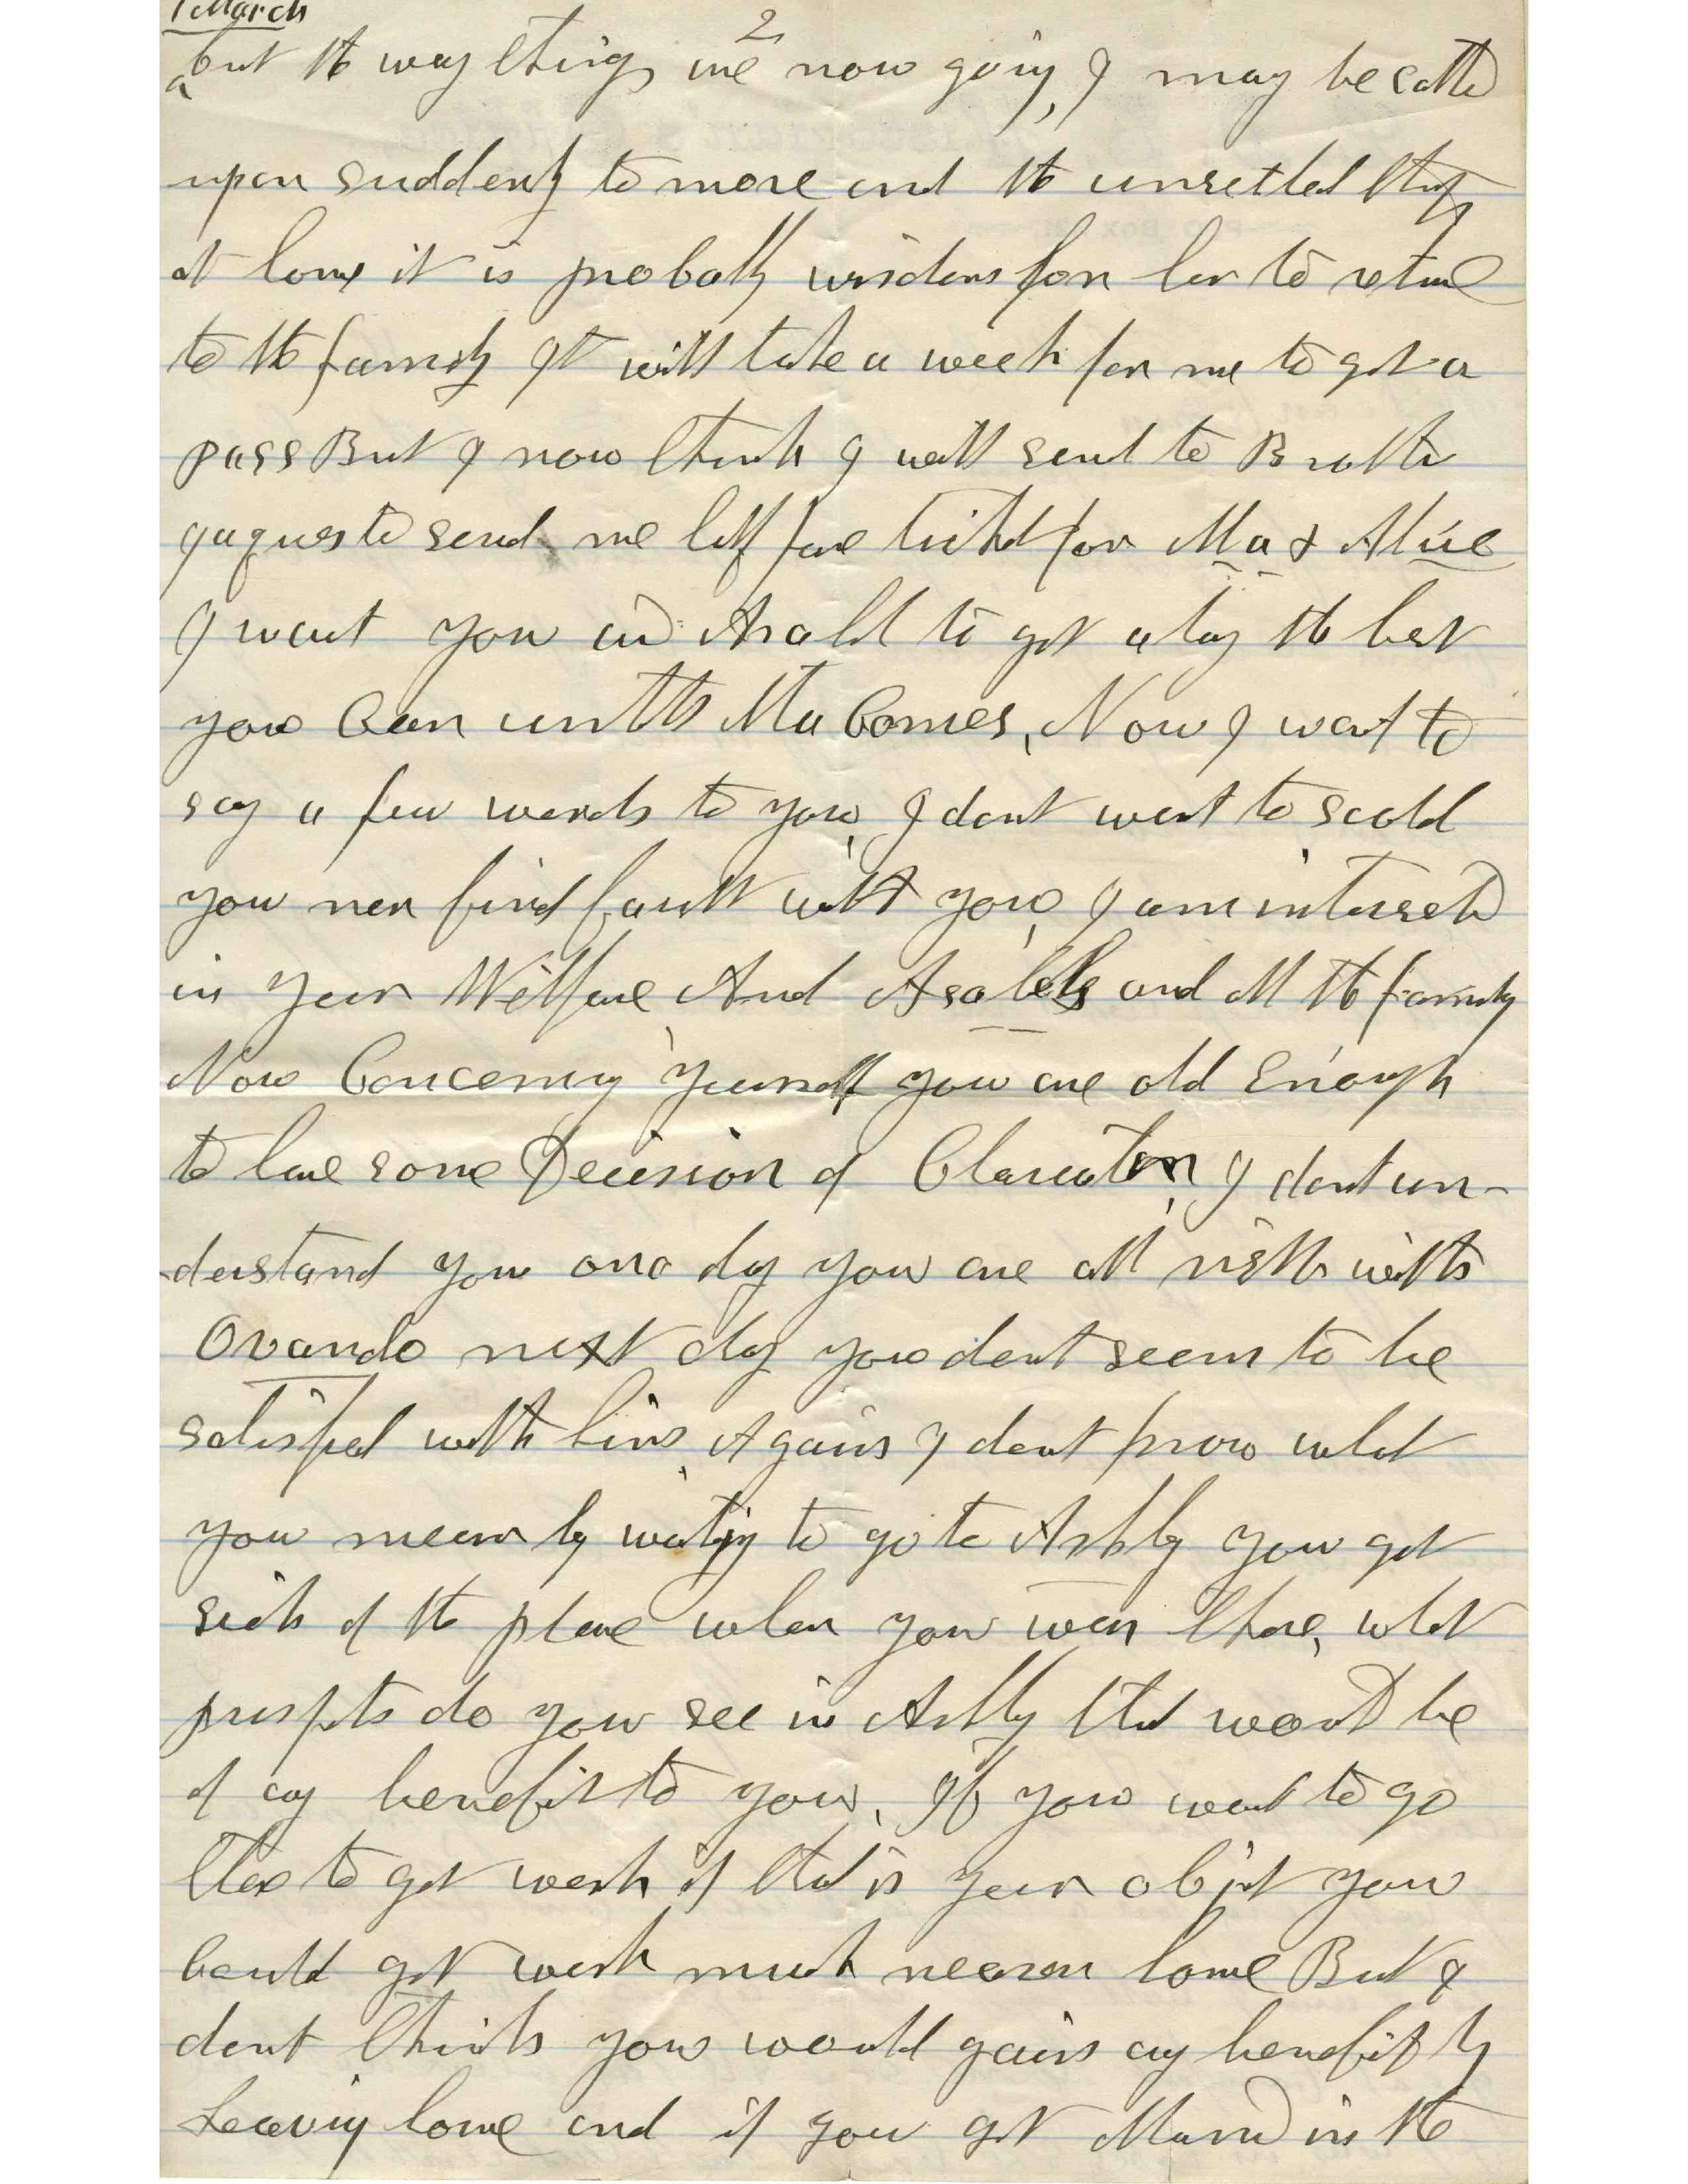 1 March
2
but the way things are now going, I may be called
upon suddenly to move and the unsettled things
at home it is probably wisdom for her to return
to the family It will take a week for me to get a
pass But I now think I will send to Brother
Jaques to send me half fare ticket for Ma & Alice
I want you and Asahel to get along the best
you Can until Ma Comes, Now I want to
say a few words to you, I dont want to scold
you nor find fault with you, I am interested
in your Welfare And Asahels and All the family
Now Concerning yourself you are old Enough
to have some Decision of Character, I dont un-
derstand you one day you are all right with
Ovando next day you dont seem to be
satisfied with him, Again I dont know what
you mean by wanting to go to Ashley you got
sick of the place when you were there, what
prospects do you see in Ashley that would be
of any benefit to you, If you want to go
there to get work if that is your object you
Could get work much nearer home But I
dont think you would gain any benefit by
Leaving home and if you get Married in the